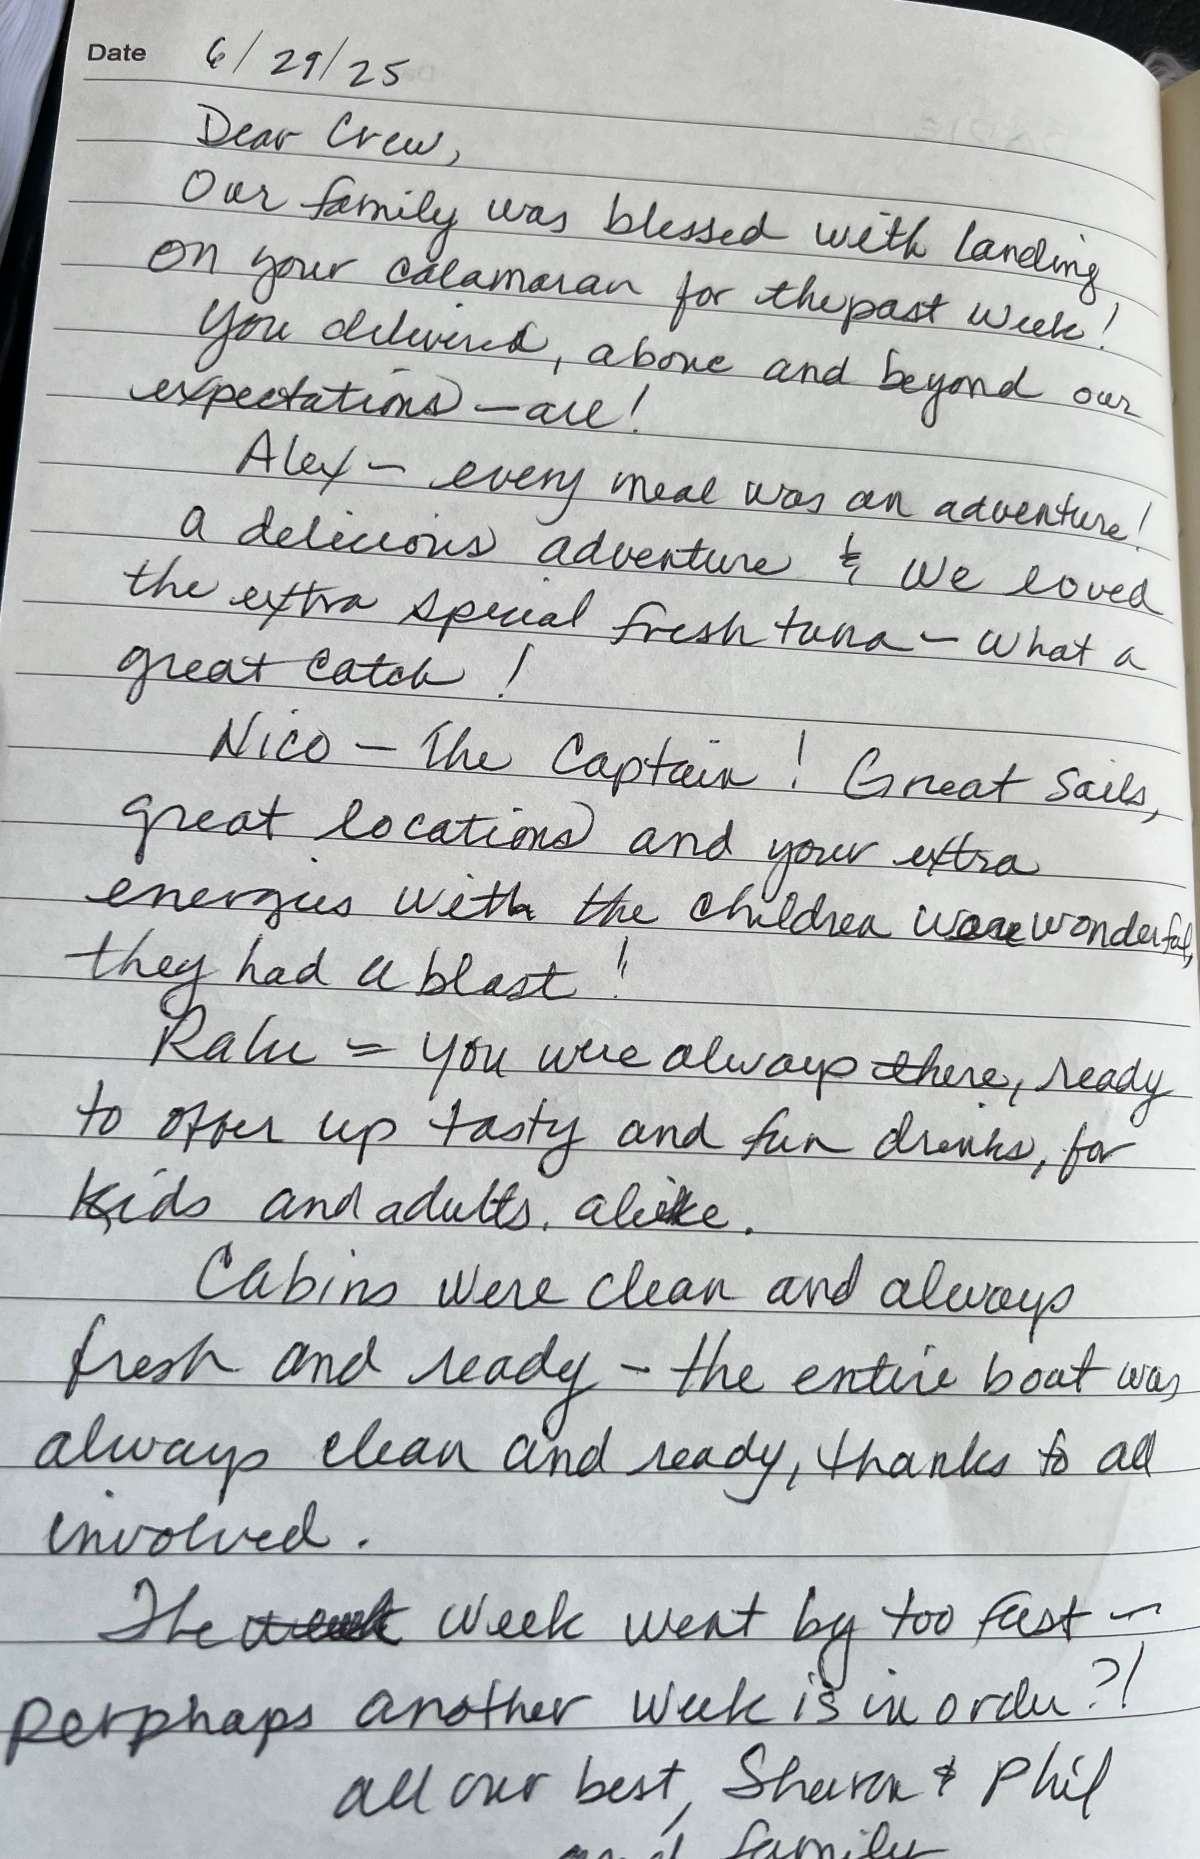 Date 6/29/25
Dear Crew,
Our family was blessed with landing
on your catamaran for the past week!
You delivered, above and beyond our
expectations - all!
Alex - every meal was an adventure!
a delicious adventure & we loved
the extra special fresh tuna - what a
great catch!
Nico - The Captain! Great sails,
great locations and your extra
energies with the children were wonderful,
they had a blast!
- you were always there, ready
to offer up tasty and fun drinks, for
kids and adults. alike.
Cabins were clean and always
fresh and ready - the entire boat was
always clean and ready, thanks to all
involved.
The week week went by too fast -
Perphaps another week is in order?!
all our best, Sharon & Phil
and family